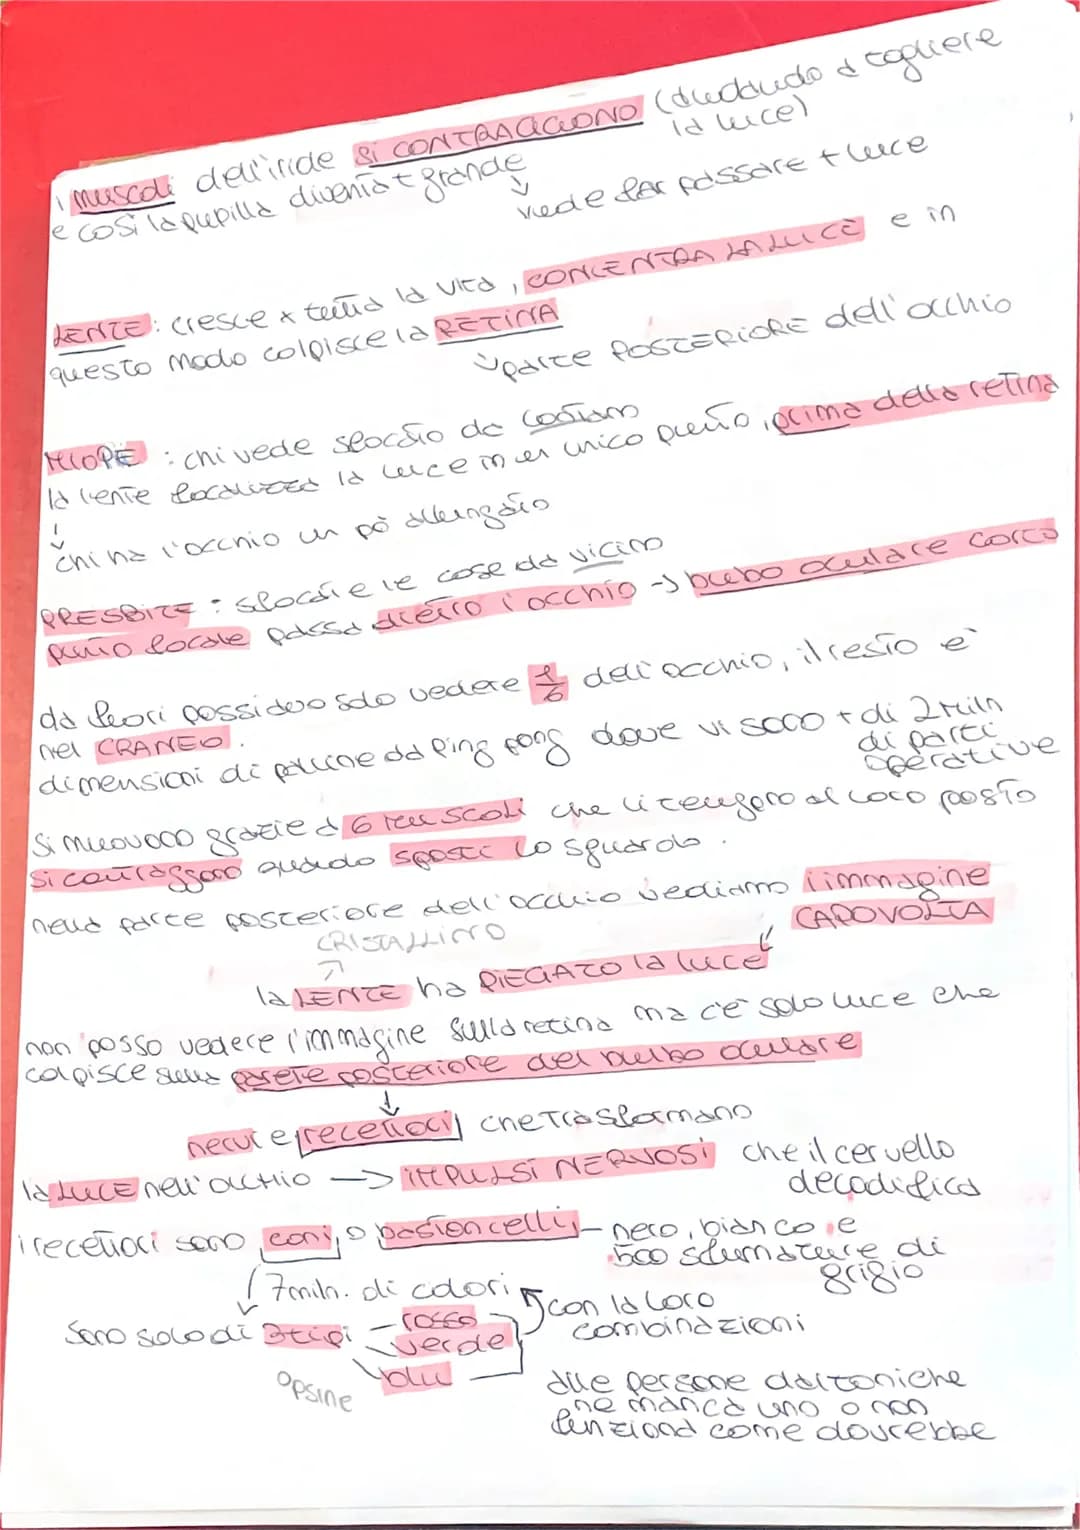 i muscoli dell'iride si CONTRAGGONO (andando a togliere la luce)
e così la pupilla diventa + grande
↓
viene far passare + luce
LENTE: cresce x tutta la vita, CONCENTRA LA LUCE e in
questo modo colpisce la RETINA
↓ parte POSTERIORE dell'occhio
MIOPE : chi vede sfocato da lontano
la lente focalizza la luce in un unico punto, prima della retina
↓
chi ha l'occhio un pò allungato
PRESBITE : sfocate le cose da vicino
punto focale passa dietro l'occhio → bulbo oculare corto
da fuori possiamo solo vedere 1/6 dell'occhio, il resto è
nel CRANEO.
dimensioni di palline da ping pong dove vi sono + di 2 miln
di parti
operative
Si muovono grazie a 6 muscoli che li tengono al loro posto
si contraggono quando sposti lo sguardo.
nella parte posteriore dell'occhio vediamo l'immagine
CAPOVOLTA
CRISTALLINO
la LENTE ha PIEGATO la luce
non posso vedere l'immagine sulla retina ma c'è solo luce che
colpisce sulla parete posteriore del bulbo oculare
↓
nervi e recettori che trasformano
la LUCE nell'occhio → IMPULSI NERVOSI che il cervello
decodifica
i recettori sono coni o bastoncelli - nero, bianco e
500 sfumature di
grigio
7 miln. di colori
con la loro
combinazioni
Sono solo di 3 tipi - rosso
verde
blu
opsine
alle persone daltoniche
ne manca uno o non
funziona come dovrebbe